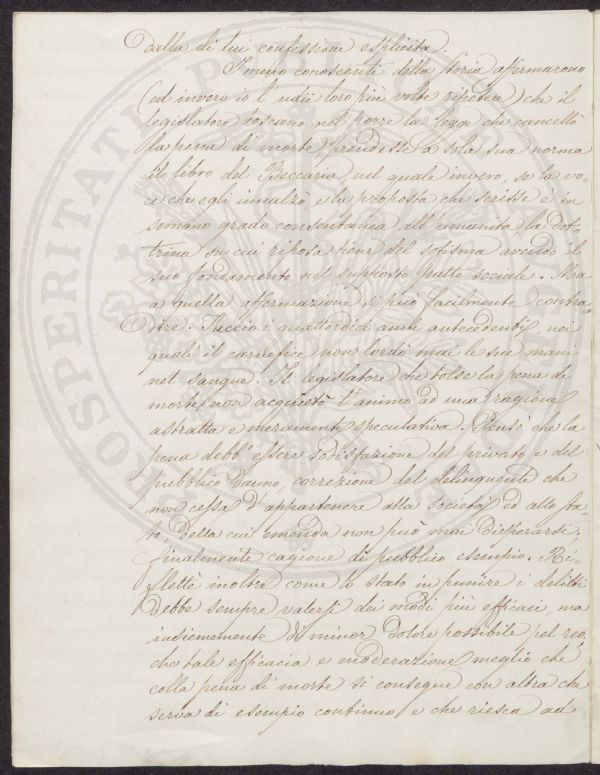 dalla di lui confessione esplicita.
I meno conoscenti della storia affermarono
(ed invero io l'udii loro più volte ripetere) che il
legislatore toscano nel porre la legge che cancellò
la pena di morte, prendesse a sola sua norma
il libro del Beccaria, nel quale invero, se la vo-
ce che egli innalzò e la proposta che scrisse è in
sommo grado consentanea all'umanità la dot-
trina su cui riposa tiene del sofisma avendo il
suo fondamento nel supposto patto sociale. Ma
a quella affermazione si può facilmente contra-
dire. Taccio i quattordici anni antecedenti, nei
quali il carnefice non lordò mai le sue mani
nel sangue. Il legislatore che tolse la pena di
morte, non acquietò l'animo ad una ragione
astratta e meramente speculativa. Pensò che la
pena debb'essere sodisfazione del privato e del
pubblico danno, correzione del delinquente che
non cessa d'appartenere alla società ed allo sta-
to, della cui emenda non può mai disperarsi.
finalmente cagione di pubblico esempio. Ri-
flettè inoltre come lo stato in punire i delitti
debbe sempre valersi dei modi più efficaci, ma
insiememente di minor dolore possibile pel reo,
che tale efficacia e moderazione meglio che
colla pena di morte si consegue con altra che
serva di esempio continuo e che riesca ad
PROSPERITATI PUBLICAE